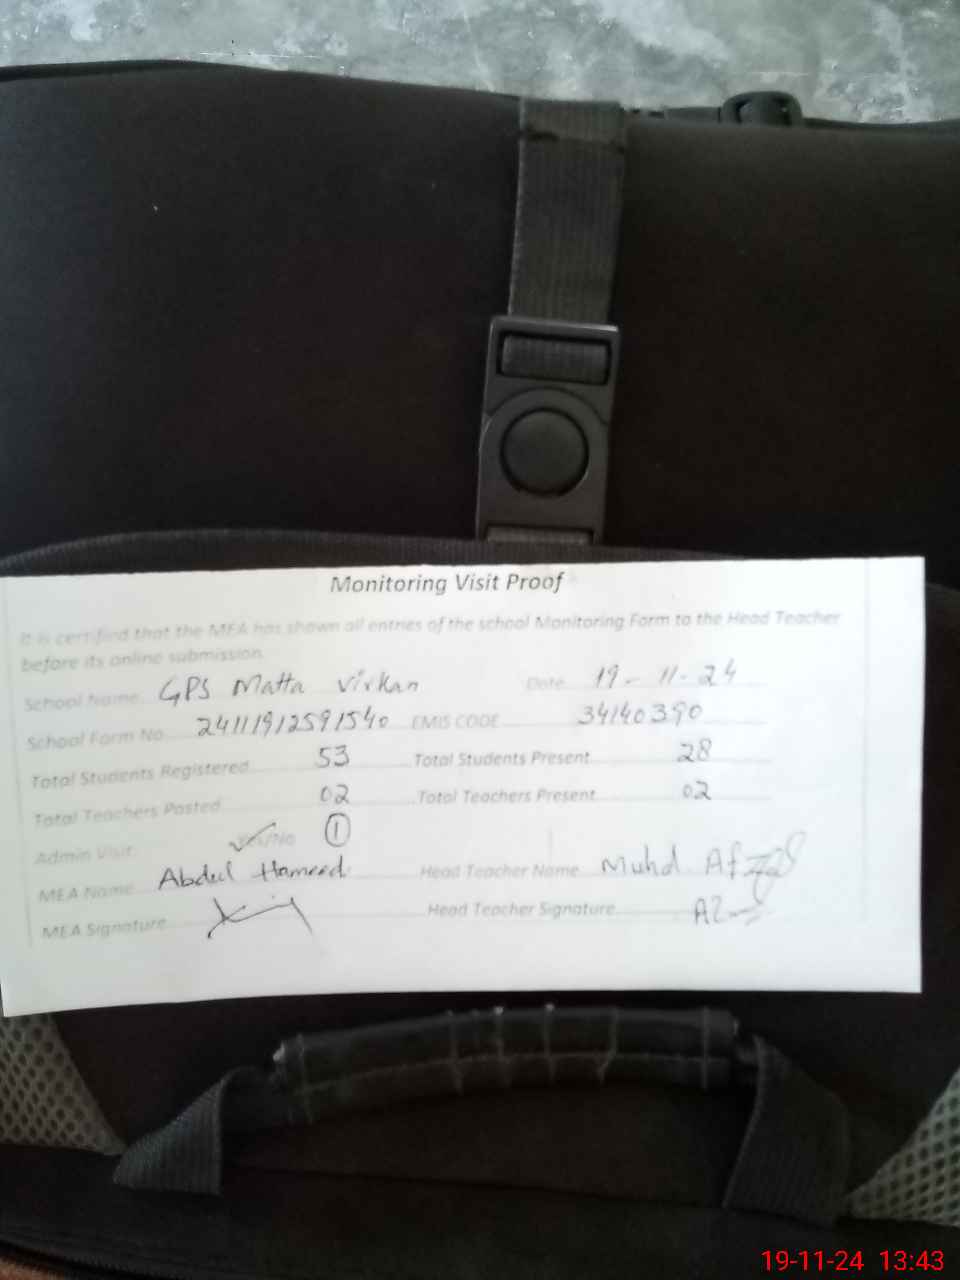 Monitoring Visit Proof
It is certified that the MEA has shown all entries of the school Monitoring Form to the Head Teacher
before its online submission.
School Name GPS Matta Virkan Date 19-11-24
School Form No 24111912591540 EMIS CODE 34140390
Total Students Registered 53 Total Students Present 28
Total Teachers Posted 02 Total Teachers Present 02
Admin Visit: Yes/No 1
MEA Name Abdul Hameed Head Teacher Name Muhd Afzal
MEA Signature Head Teacher Signature
19-11-24 13:43